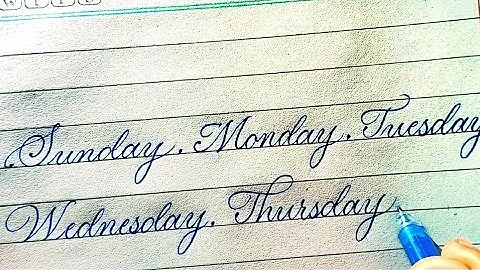 Sunday. Monday. Tuesday
Wednesday. Thursday